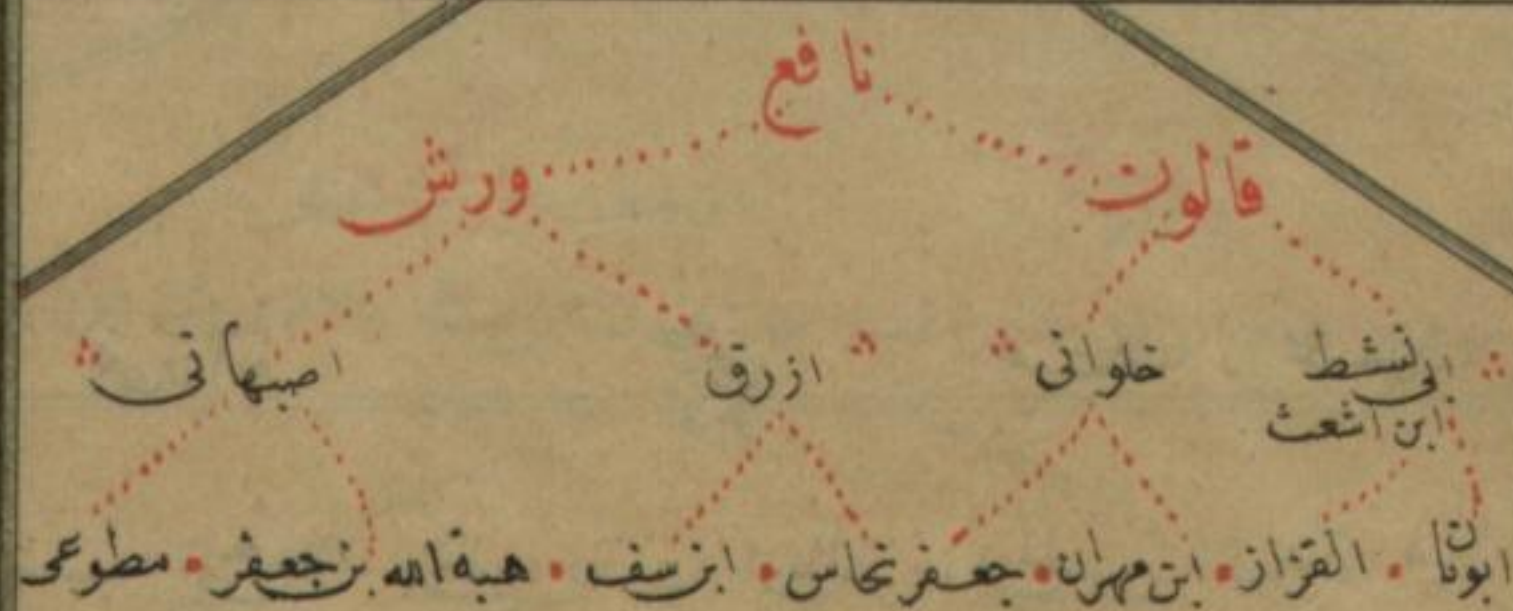 نافع
قالون ورش
ابی نشط حلوانی ازرق اصبهانی
ابن اشعث
القزاز ابن مهران جعفر نحاس ابن سف هبة الله بن جعفر مطوعی